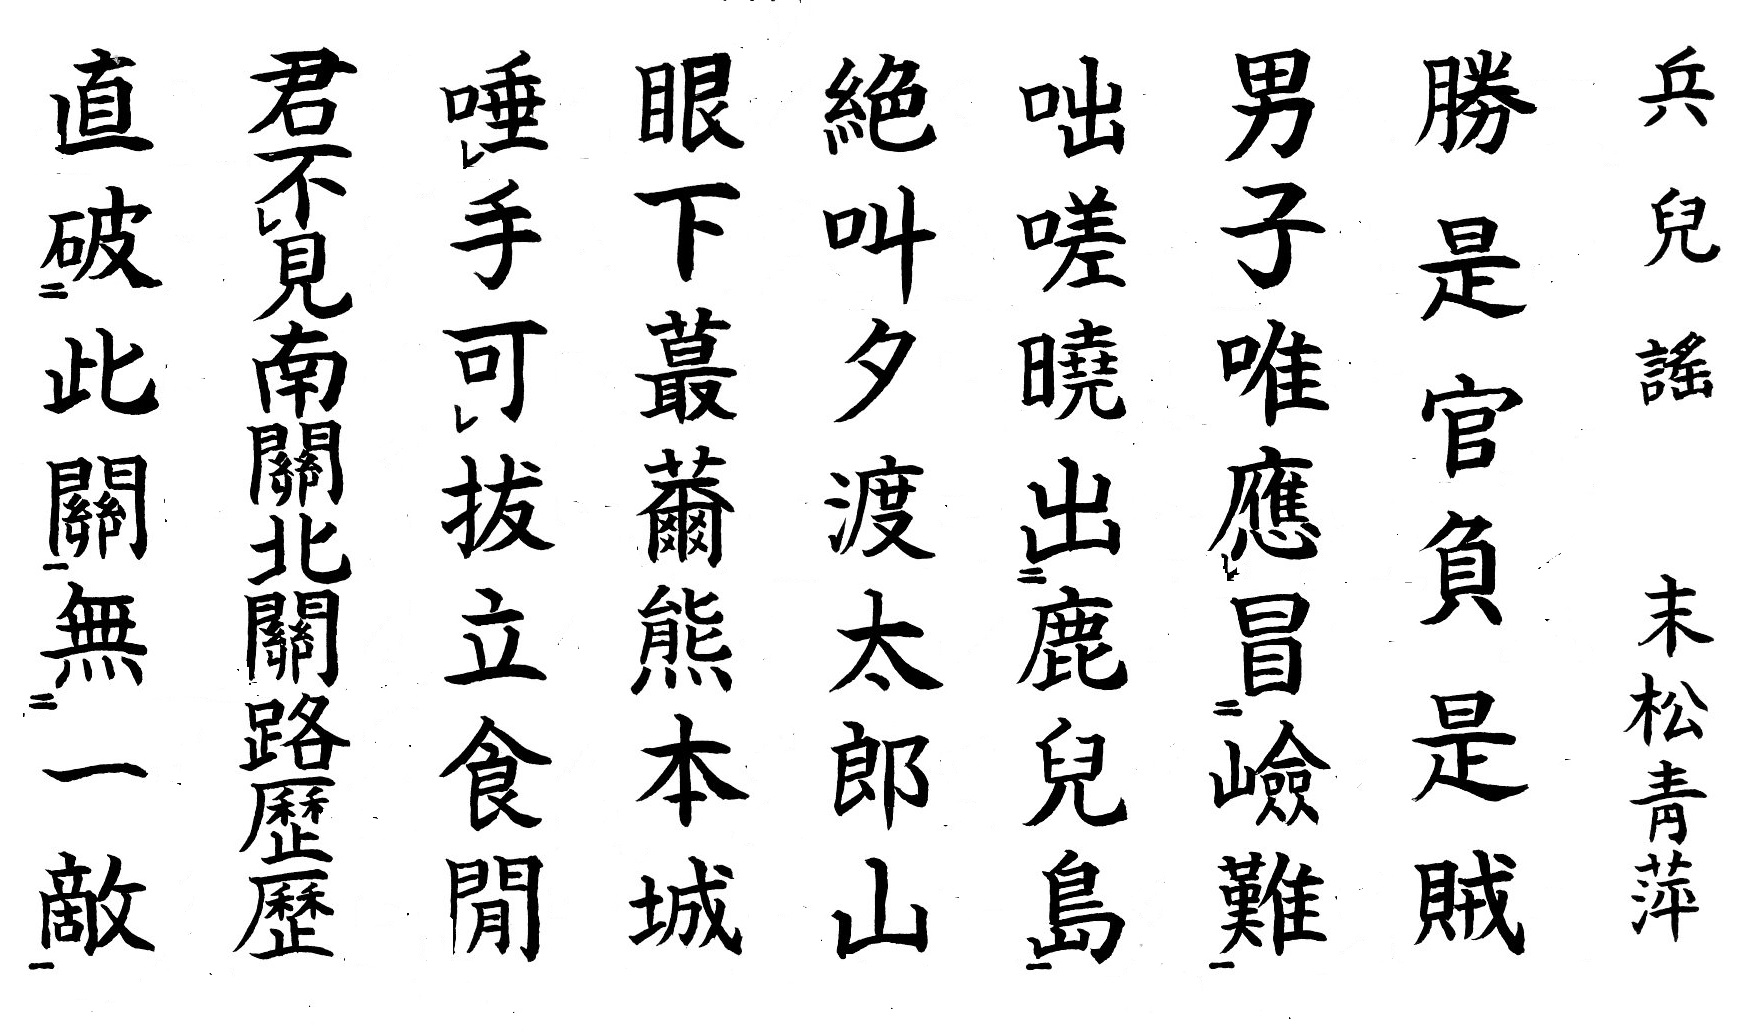 兵兒謠 末松青萍
勝是官負是賊
男子唯應㆑冒㆓嶮難㆒
咄嗟曉出㆓鹿兒島㆒
絶叫夕渡太郎山
眼下蕞薾熊本城
唾㆑手可㆑拔立食閒
君不㆑見南關北關路歷歷
直破㆓此關㆒無㆓一敵㆒